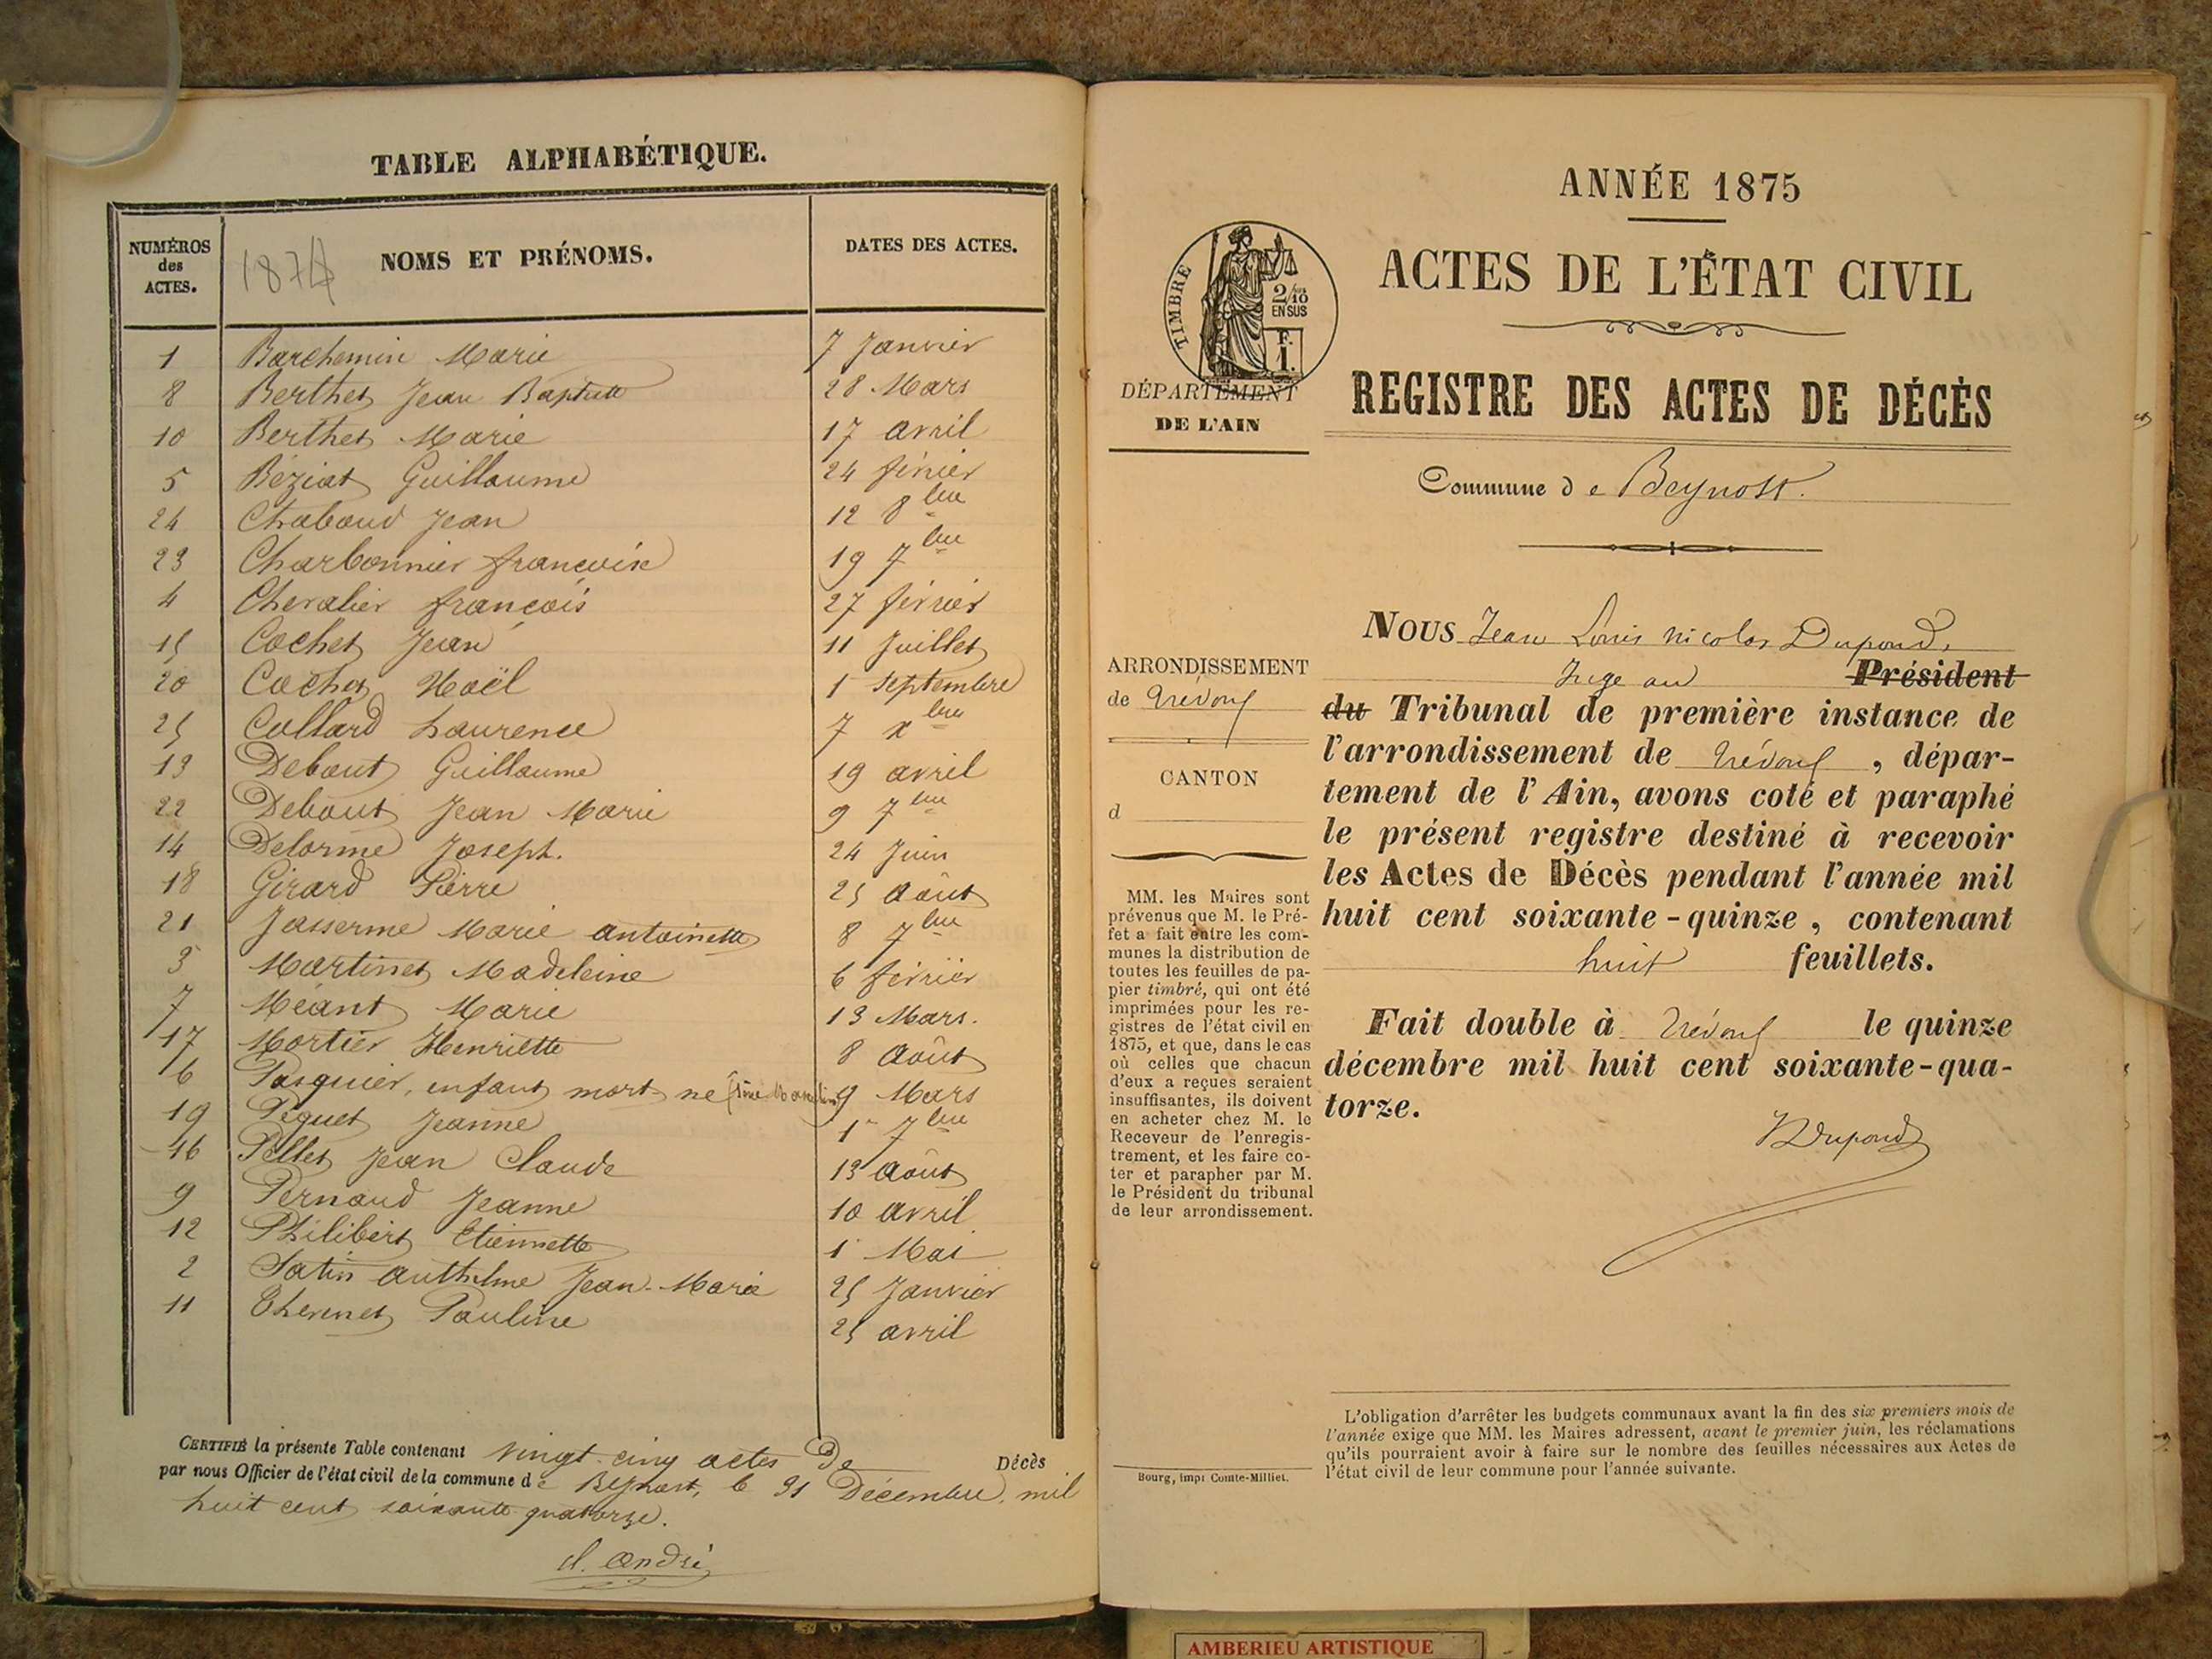 TABLE ALPHABÉTIQUE.
NUMÉROS des ACTES.
1874
NOMS ET PRÉNOMS.
DATES DES ACTES.
1 Barchemin Marie 7 Janvier
8 Berthet Jean Baptiste 28 Mars
10 Berthet Marie 17 avril
5 Béziat Guillaume 24 février
24 Chabaud Jean 12 8bre
23 Charbonnier françoise 19 7bre
4 Chevalier françois 27 février
15 Cochet Jean 11 Juillet
20 Cochet Noël 1 septembre
25 Collard Laurence 7 xbre
13 Debout Guillaume 19 avril
22 Debout Jean Marie 9 7bre
14 Delorme Joseph. 24 Juin
18 Girard Pierre 25 Août
21 Jasserme Marie antoinette 8 7bre
3 Martinet Madeleine 6 février
7 Méant Marie 13 Mars.
17 Mortier Henriette 8 Août
6 Pasquier, enfant mort-né 9 Mars
19 Péguet Jeanne 1er 7bre
16 Pellet Jean Claude 13 Août
9 Pernaud Jeanne 10 avril
12 Philibert Etiennette 1 Mai
2 Satin Anthelme Jean-Marie 25 Janvier
11 Thevenet Pauline 25 avril
CERTIFIÉ la présente Table contenant vingt-cinq actes De Décès
par nous Officier de l'état civil de la commune de Beynost, le 31 Décembre, mil
huit cent soixante-quatorze.
Cl. André
ANNÉE 1875
TIMBRE
2/10 EN SUS
F. 1.
ACTES DE L'ÉTAT CIVIL
DÉPARTEMENT
DE L'AIN
REGISTRE DES ACTES DE DÉCÈS
Commune de Beynost.
NOUS Jean Louis Nicolas Dupond,
Juge au Président
du Tribunal de première instance de
l'arrondissement de Trévoux, dépar-
tement de l'Ain, avons coté et paraphé
le présent registre destiné à recevoir
les Actes de Décès pendant l'année mil
huit cent soixante-quinze, contenant
huit feuillets.
Fait double à Trévoux le quinze
décembre mil huit cent soixante-qua-
torze.
Dupond
ARRONDISSEMENT
de Trévoux
CANTON
d
MM. les Maires sont
prévenus que M. le Pré-
fet a fait entre les com-
munes la distribution de
toutes les feuilles de pa-
pier timbré, qui ont été
imprimées pour les re-
gistres de l'état civil en
1875, et que, dans le cas
où celles que chacun
d'eux a reçues seraient
insuffisantes, ils doivent
en acheter chez M. le
Receveur de l'enregis-
trement, et les faire co-
ter et parapher par M.
le Président du tribunal
de leur arrondissement.
Bourg, impr Comte-Milliet.
L'obligation d'arrêter les budgets communaux avant la fin des six premiers mois de
l'année exige que MM. les Maires adressent, avant le premier juin, les réclamations
qu'ils pourraient avoir à faire sur le nombre des feuilles nécessaires aux Actes de
l'état civil de leur commune pour l'année suivante.
AMBERIEU ARTISTIQUE